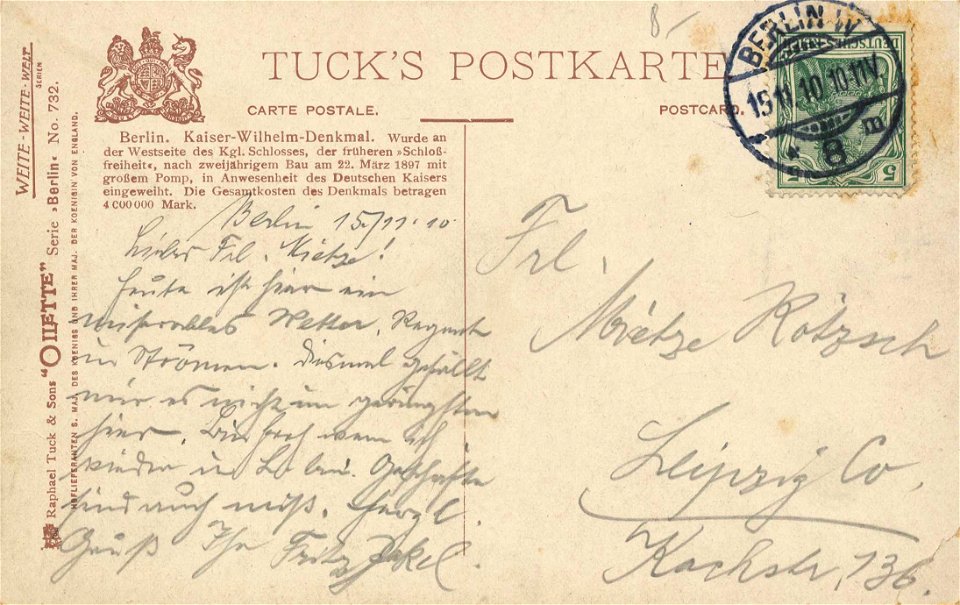 TUCK'S POSTKARTE
CARTE POSTALE.
POSTCARD.
Berlin. Kaiser-Wilhelm-Denkmal. Wurde an
der Westseite des Kgl. Schlosses, der früheren »Schloß-
freiheit«, nach zweijährigem Bau am 22. März 1897 mit
großem Pomp, in Anwesenheit des Deutschen Kaisers
eingeweiht. Die Gesamtkosten des Denkmals betragen
4 000 000 Mark.
WEITE-WEITE-WELT
SERIEN
Raphael Tuck & Sons "OILETTE" Serie »Berlin« No. 732.
HOFLIEFERANTEN S. MAJ. DES KOENIGS UND IHRER MAJ. DER KOENIGIN VON ENGLAND.
Berlin 15/11.10
Liebes Frl. Mietze!
Heute ist hier ein
miserables Wetter, Regent
in Strömen. Diesmal gefällt
mir es nicht im geringsten
hier. Bin froh wenn ich
wieder in L. bin. Geschäfte
sind auch mies. Herzl.
Gruß Ihr Fritz
Frl.
Mietze Rötzsch
Leipzig Co
Kochstr, 136.
BERLIN W
15.11.10.10-11V.
8
m
DEUTSCHES REICH
5 5
8-